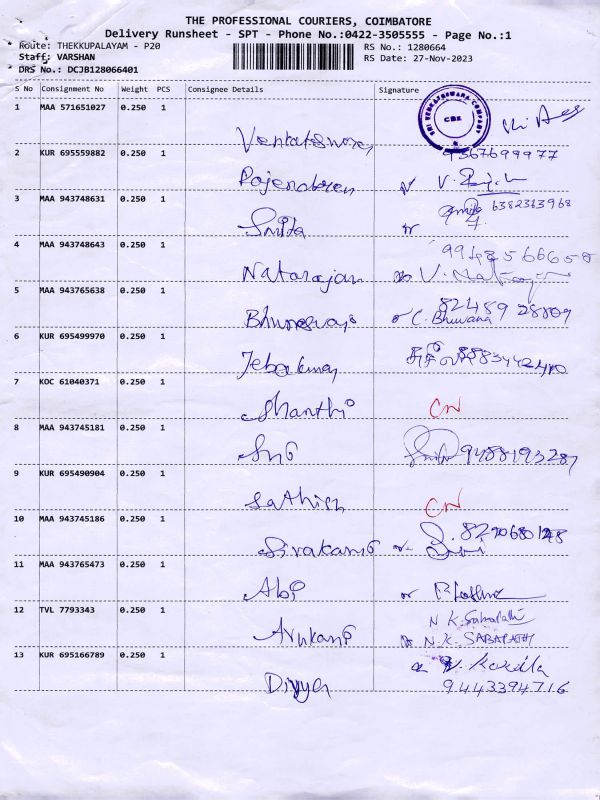 THE PROFESSIONAL COURIERS, COIMBATORE
Delivery Runsheet - SPT - Phone No.:0422-3505555 - Page No.:1
Route: THEKKUPALAYAM - P20
RS No.: 1280664
Staff: VARSHAN
RS Date: 27-Nov-2023
DRS No.: DCJB128066401
S No Consignment No Weight PCS Consignee Details Signature
1 MAA 571651027 0.250 1
SRI VENKATESWARA COMPANY
CBE
2 KUR 695559882 0.250 1 9567699977
Rajendaren V.
3 MAA 943748631 0.250 1 6382363968
Smita
4 MAA 943748643 0.250 1
Natarajan V.
5 MAA 943765638 0.250 1 82489 28809
C. Bhuvana
6 KUR 695499970 0.250 1
Jebakumar
7 KOC 61040371 0.250 1
Shanthi CN
8 MAA 943745181 0.250 1
9488193287
9 KUR 695490904 0.250 1
Sathish CN
10 MAA 943745186 0.250 1
11 MAA 943765473 0.250 1
Abi
12 TVL 7793343 0.250 1 N K. Sabapathi
N.K. SABAPATHY
13 KUR 695166789 0.250 1 Kokila
Divya 9443394716